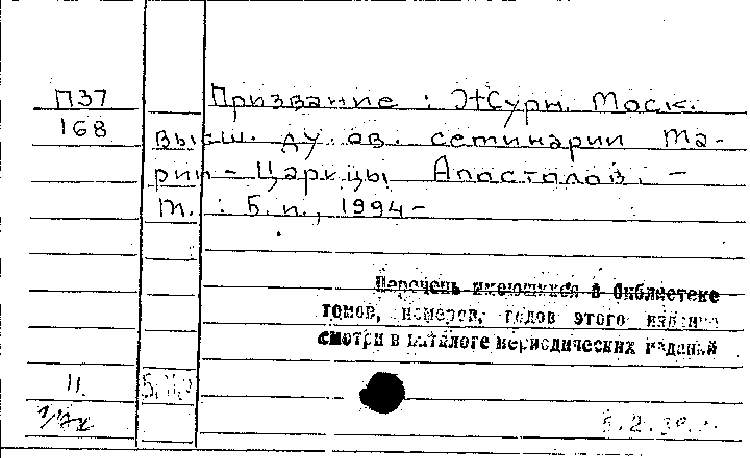 П37 Призвание : Журн. Моск.
168 высш. духов. семинарии Ма-
рии - Царицы Апостолов. -
М. : Б. и., 1994-
Перечень имеющихся в библиотеке
томов, номеров, годов этого издания
смотри в каталоге периодических изданий